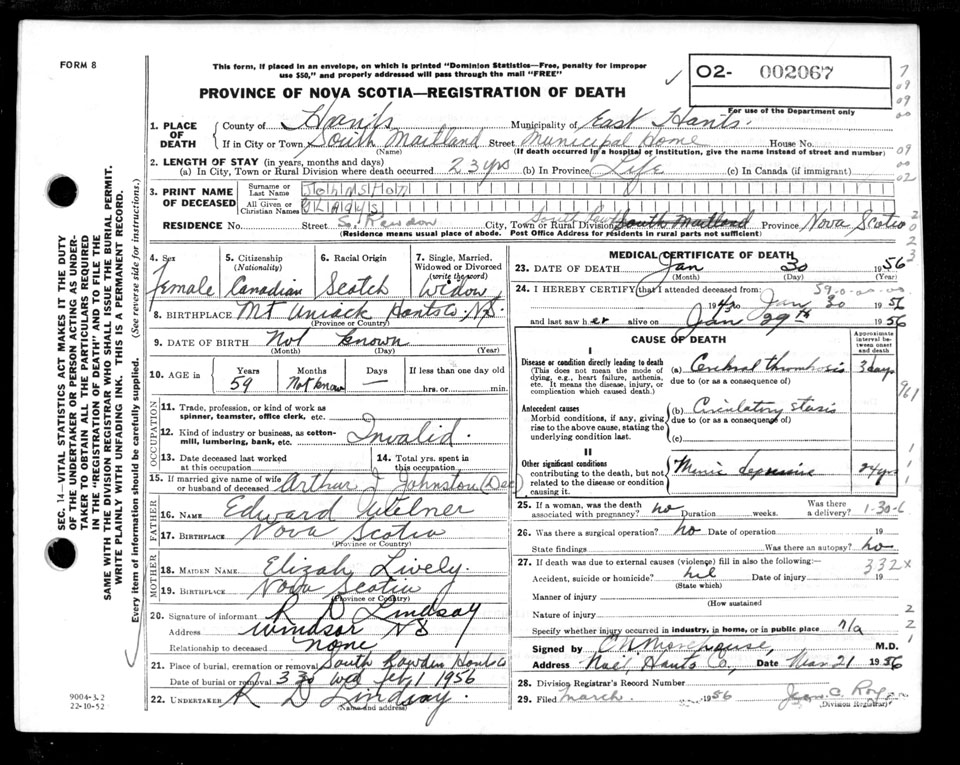 FORM 8
This form, if placed in an envelope, on which is printed "Dominion Statistics—Free, penalty for improper
use $50," and properly addressed will pass through the mail "FREE"
02- 002067
For use of the Department only
PROVINCE OF NOVA SCOTIA—REGISTRATION OF DEATH
1. PLACE OF DEATH
County of Hants Municipality of East Hants.
If in City or Town South Maitland Street Municipal Home House No.
(Name) (If death occurred in a hospital or institution, give the name instead of street and number)
2. LENGTH OF STAY (in years, months and days)
(a) In City, Town or Rural Division where death occurred 23 yrs (b) In Province Life (c) In Canada (if immigrant)
3. PRINT NAME OF DECEASED
Surname or Last Name Johnston
All Given or Christian Names Gladys
RESIDENCE No. Street S. Rawdon City, Town or Rural Division South Maitland Province Nova Scotia
(Residence means usual place of abode. Post Office Address for residents in rural parts not sufficient)
4. Sex female
5. Citizenship (Nationality) Canadian
6. Racial Origin Scotch
7. Single, Married, Widowed or Divorced (write the word) Widow
8. BIRTHPLACE Mt Uniack Hants Co; N.S.
(Province or Country)
9. DATE OF BIRTH Not known
(Month) (Day) (Year)
10. AGE Years 59 Months Not know Days — If less than one day old hrs. or min.
OCCUPATION
11. Trade, profession, or kind of work as spinner, teamster, office clerk, etc.
12. Kind of industry or business, as cotton-mill, lumbering, bank, etc. Invalid.
13. Date deceased last worked at this occupation
14. Total yrs. spent in this occupation
15. If married give name of wife or husband of deceased Arthur J Johnston (Dec)
FATHER
16. NAME Edward
17. BIRTHPLACE Nova Scotia
(Province or Country)
MOTHER
18. MAIDEN NAME Elizah Lively.
19. BIRTHPLACE Nova Scotia
(Province or Country)
20. Signature of informant R D Lindsay
Address Windsor NS
Relationship to deceased none
21. Place of burial, cremation or removal South Rawdon Hants Co
Date of burial or removal 3 30 Wed Feb 1 1956
22. UNDERTAKER R D Lindsay.
(Name and address)
MEDICAL CERTIFICATE OF DEATH
23. DATE OF DEATH Jan 30 1956
(Month) (Day) (Year)
24. I HEREBY CERTIFY that I attended deceased from:
1943 to Jan 30 1956
and last saw her alive on Jan 29th 1956
CAUSE OF DEATH
Approximate interval between onset and death
I
Disease or condition directly leading to death
(This does not mean the mode of dying, e.g., heart failure, asthenia, etc. It means the disease, injury, or complication which caused death.)
(a) Cerebral thrombosis 3 days
due to (or as a consequence of)
Antecedent causes
Morbid conditions, if any, giving rise to the above cause, stating the underlying condition last.
(b) Circulatory stasis
due to (or as a consequence of)
(c)
II
Other significant conditions
contributing to the death, but not related to the disease or condition causing it.
Manic depressive 24 yrs
25. If a woman, was the death associated with pregnancy? no Duration weeks. Was there a delivery?
26. Was there a surgical operation? no Date of operation 19
State findings Was there an autopsy? no
27. If death was due to external causes (violence) fill in also the following:—
Accident, suicide or homicide? nil Date of injury 19
(State which)
Manner of injury
(How sustained)
Nature of injury
Specify whether injury occurred in industry, in home, or in public place n/a
Signed by M.D.
Address Noel, Hants Co, Date Mar 21 1956
28. Division Registrar's Record Number
29. Filed March 1956
(Division Registrar)
1-30-6
332x
961
SEC. 14—VITAL STATISTICS ACT MAKES IT THE DUTY
OF THE UNDERTAKER OR PERSON ACTING AS UNDER-
TAKER TO OBTAIN ALL THE PARTICULARS REQUIRED
IN THE "REGISTRATION OF DEATH" AND TO FILE THE
SAME WITH THE DIVISION REGISTRAR WHO SHALL ISSUE THE BURIAL PERMIT.
WRITE PLAINLY WITH UNFADING INK. THIS IS A PERMANENT RECORD.
Every item of information should be carefully supplied. (See reverse side for instructions.)
9004-3.2
22-10-52